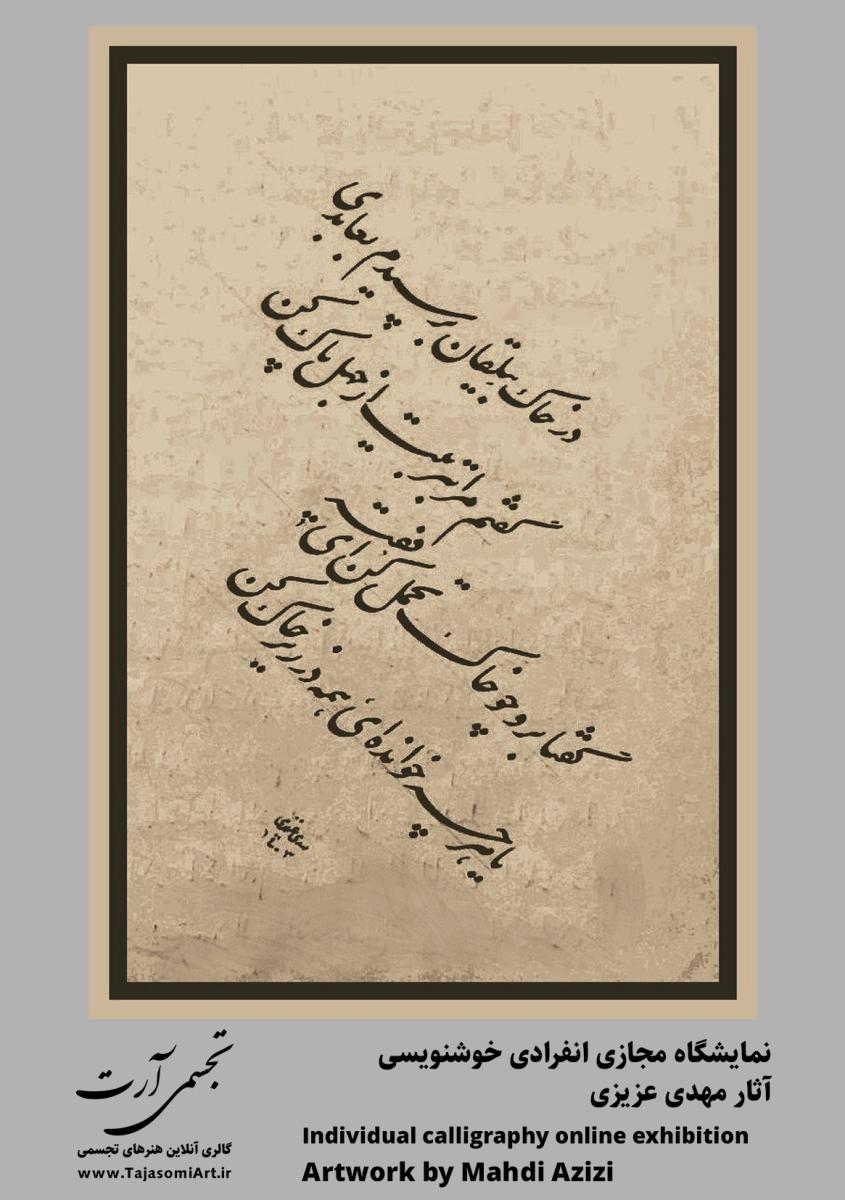 در خاک بیلقان برسیدم بعابدی
گفتم مرا بتربیت از جهل پاک کن
گفتا برو چو خاک تحمل کن ای فقیه
یا هرچه خوانده‌ای همه در زیر خاک کن
۱۴۰۳
نمایشگاه مجازی انفرادی خوشنویسی
آثار مهدی عزیزی
Individual calligraphy online exhibition
Artwork by Mahdi Azizi
تجسمی آرت
گالری آنلاین هنرهای تجسمی
www.TajasomiArt.ir